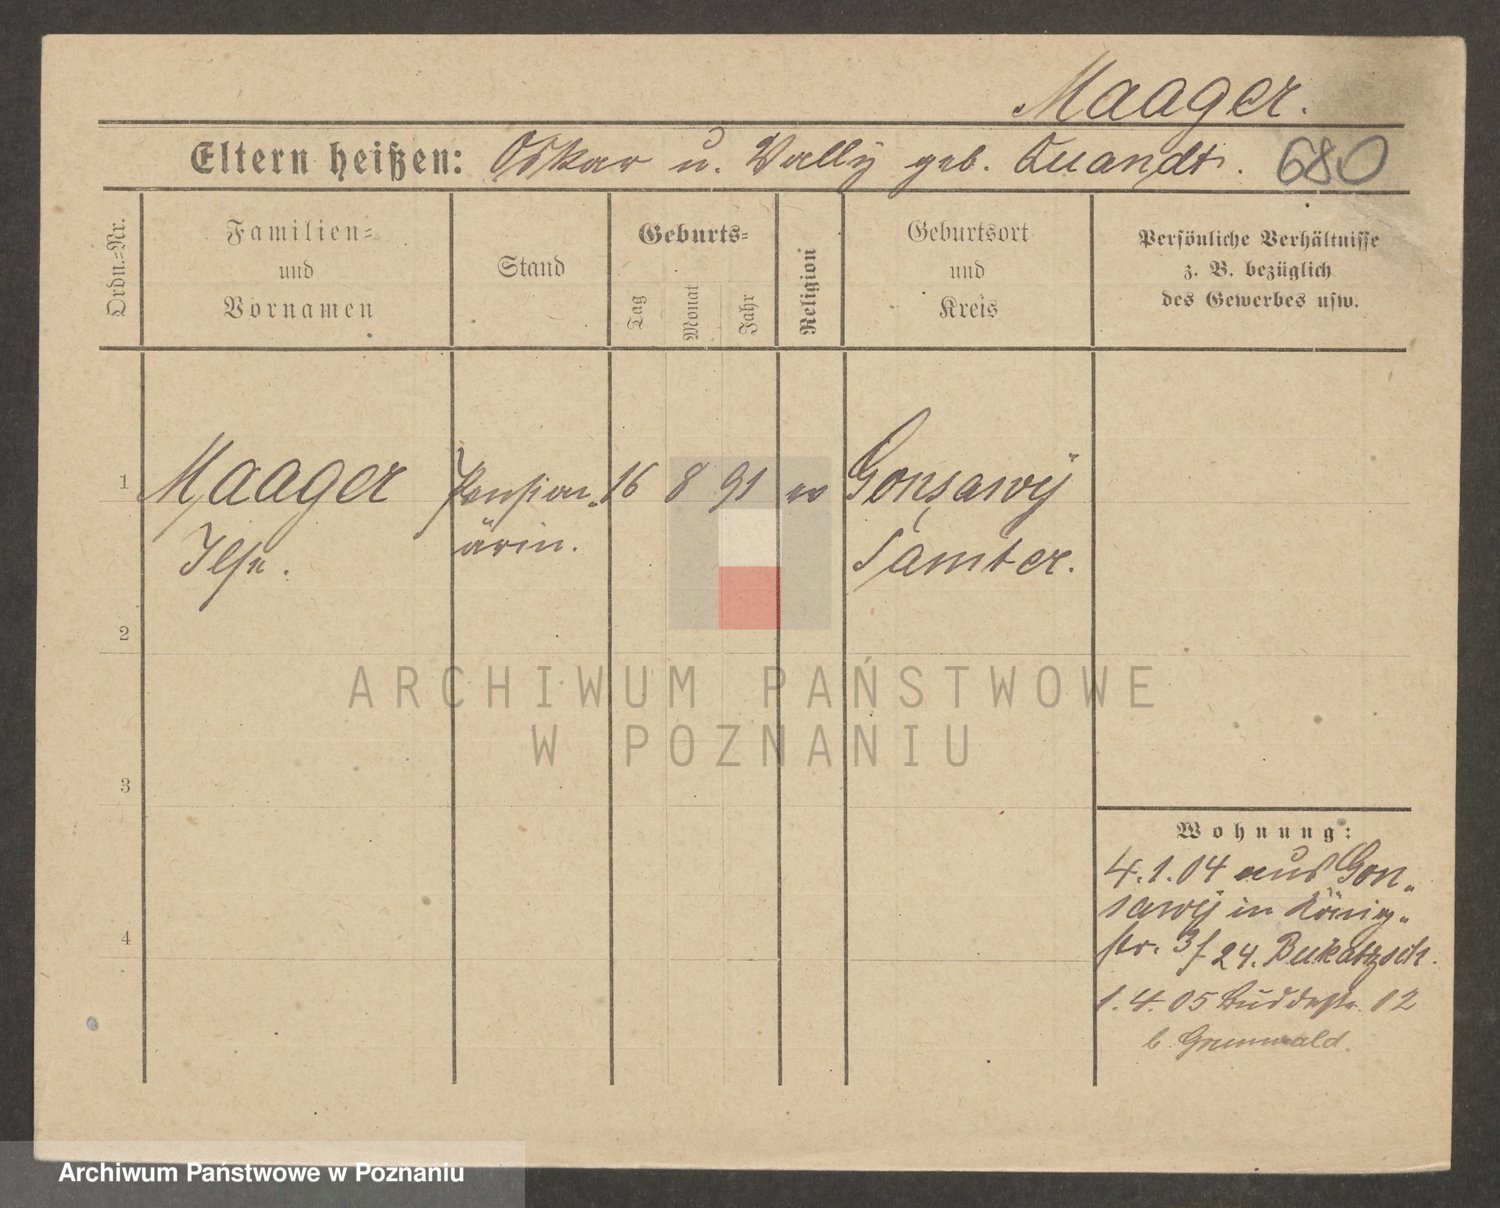 Maager.
Eltern heißen: Oskar u. Vally geb. Quandt. 680
Ordn.-Nr.
Familien-
und
Vornamen
Stand
Geburts-
Tag
Monat
Jahr
Religion
Geburtsort
und
Kreis
Persönliche Verhältnisse
z. B. bezüglich
des Gewerbes usw.
1 Maager Pension- 16 8 91 ev Gonsawÿ
Ilse. ärin. Samter.
2
ARCHIWUM PAŃSTWOWE
W POZNANIU
3
Wohnung:
4.1.04 aus Gon-
sawÿ in König-
str. 3f 24. Bukatzsch.
4
1.4.05 Buddestr. 12
b. Grunwald.
Archiwum Państwowe w Poznaniu